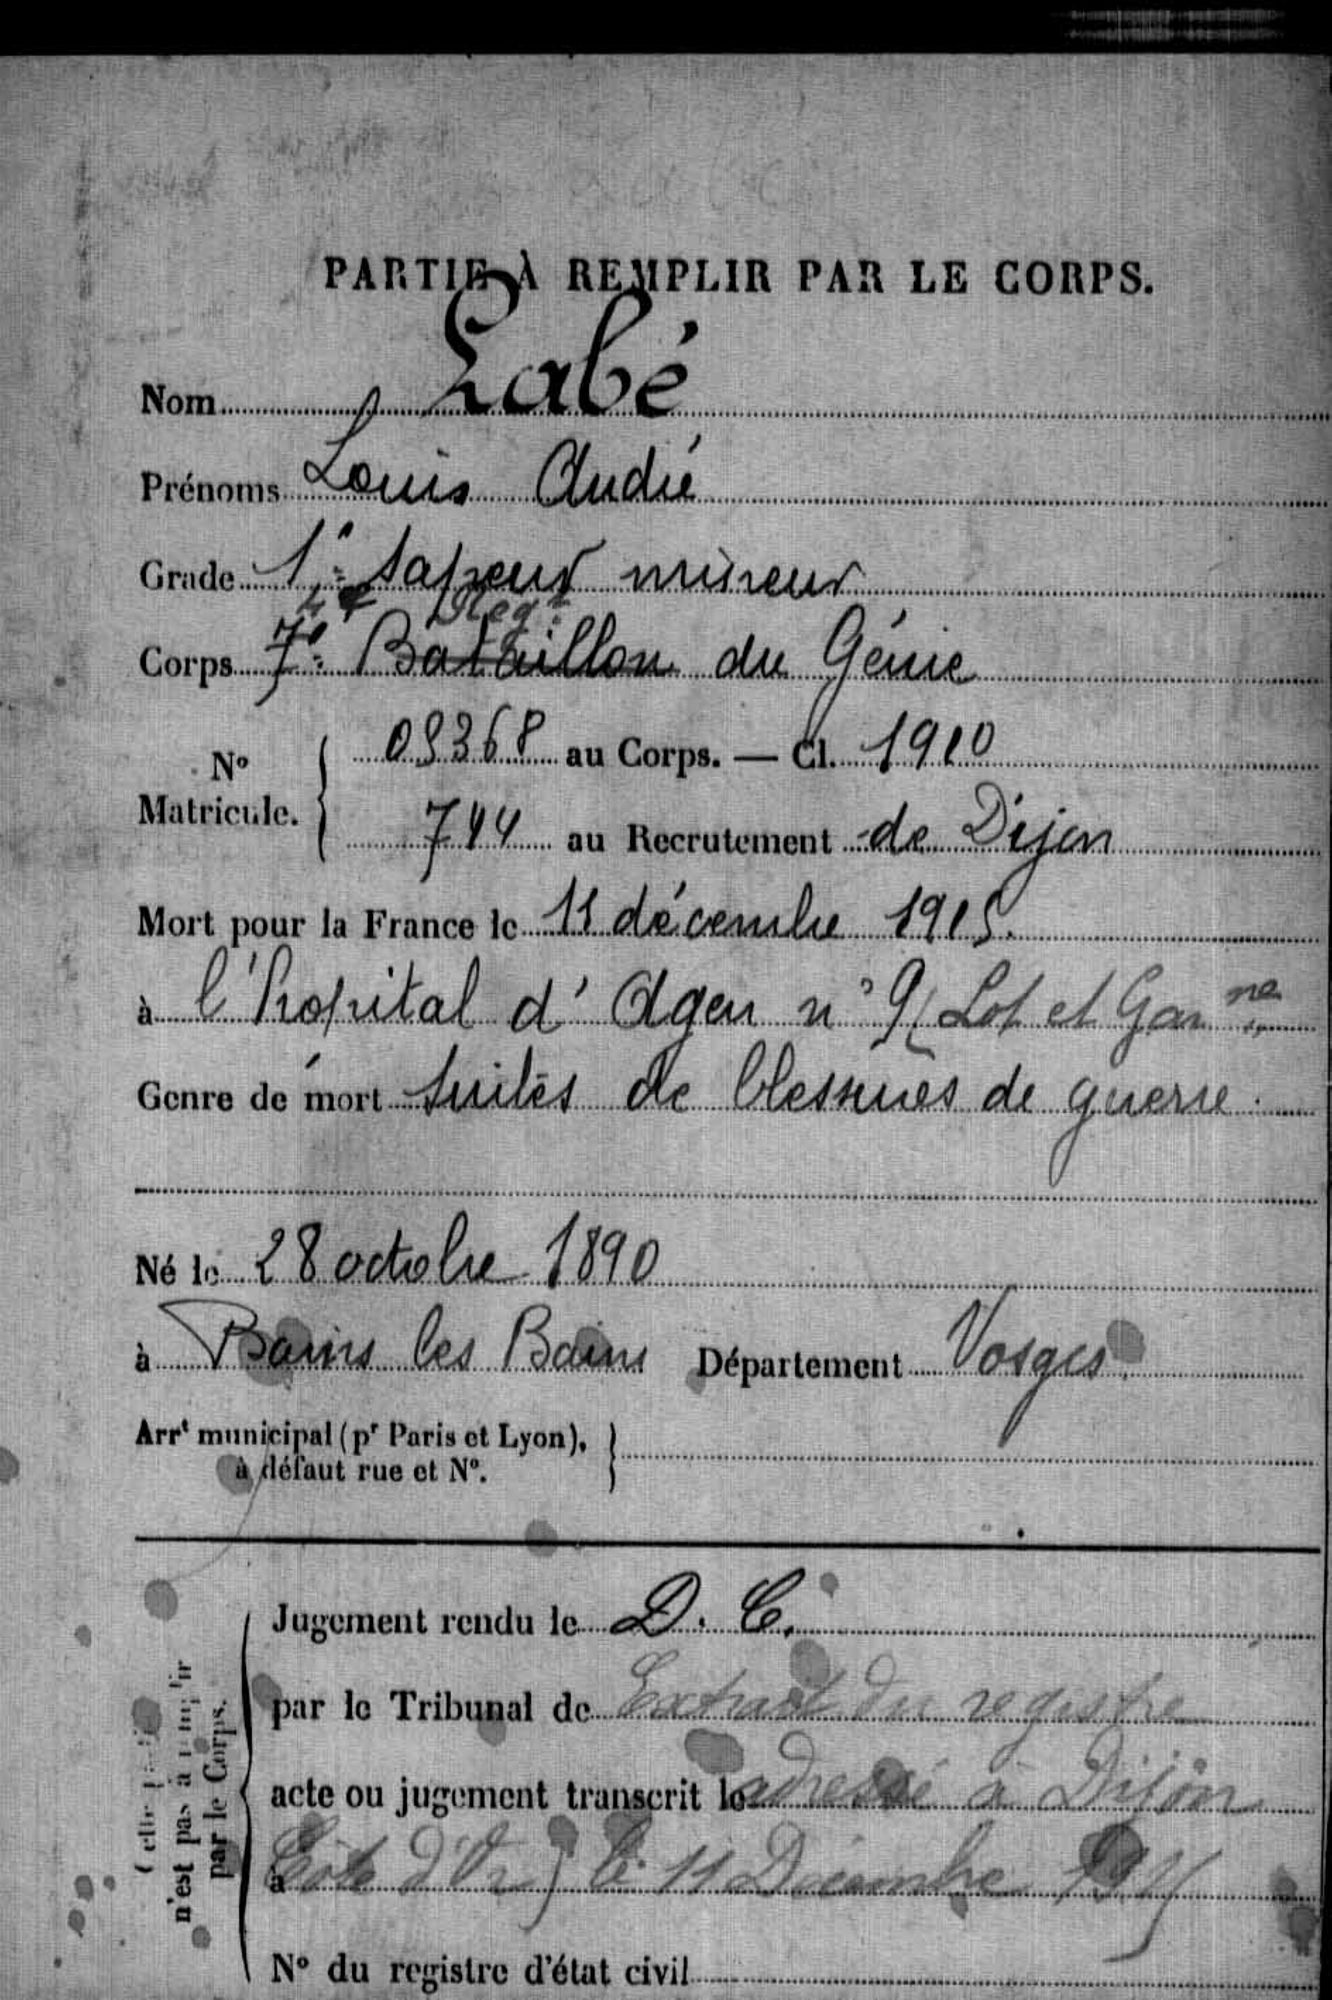 PARTIE À REMPLIR PAR LE CORPS.
Nom Labé
Prénoms Louis André
Grade 1e sapeur mineur
4e Regt
Corps 7e Bataillon du Génie
No Matricule. 09368 au Corps. — Cl. 1910
744 au Recrutement de Dijon
Mort pour la France le 11 décembre 1915.
à l'hopital d'Agen no 9 (Lot et Garne
Genre de mort suites de blessures de guerre.
Né le 28 octobre 1890
à Bains les Bains Département Vosges
Arrt municipal (pr Paris et Lyon),
à défaut rue et No.
Jugement rendu le D. C.
par le Tribunal de Extrait du registre
acte ou jugement transcrit le adressé à Dijon
à Côte d'Or) le 11 Décembre 1915
No du registre d'état civil
n'est pas à remplir
par le Corps.